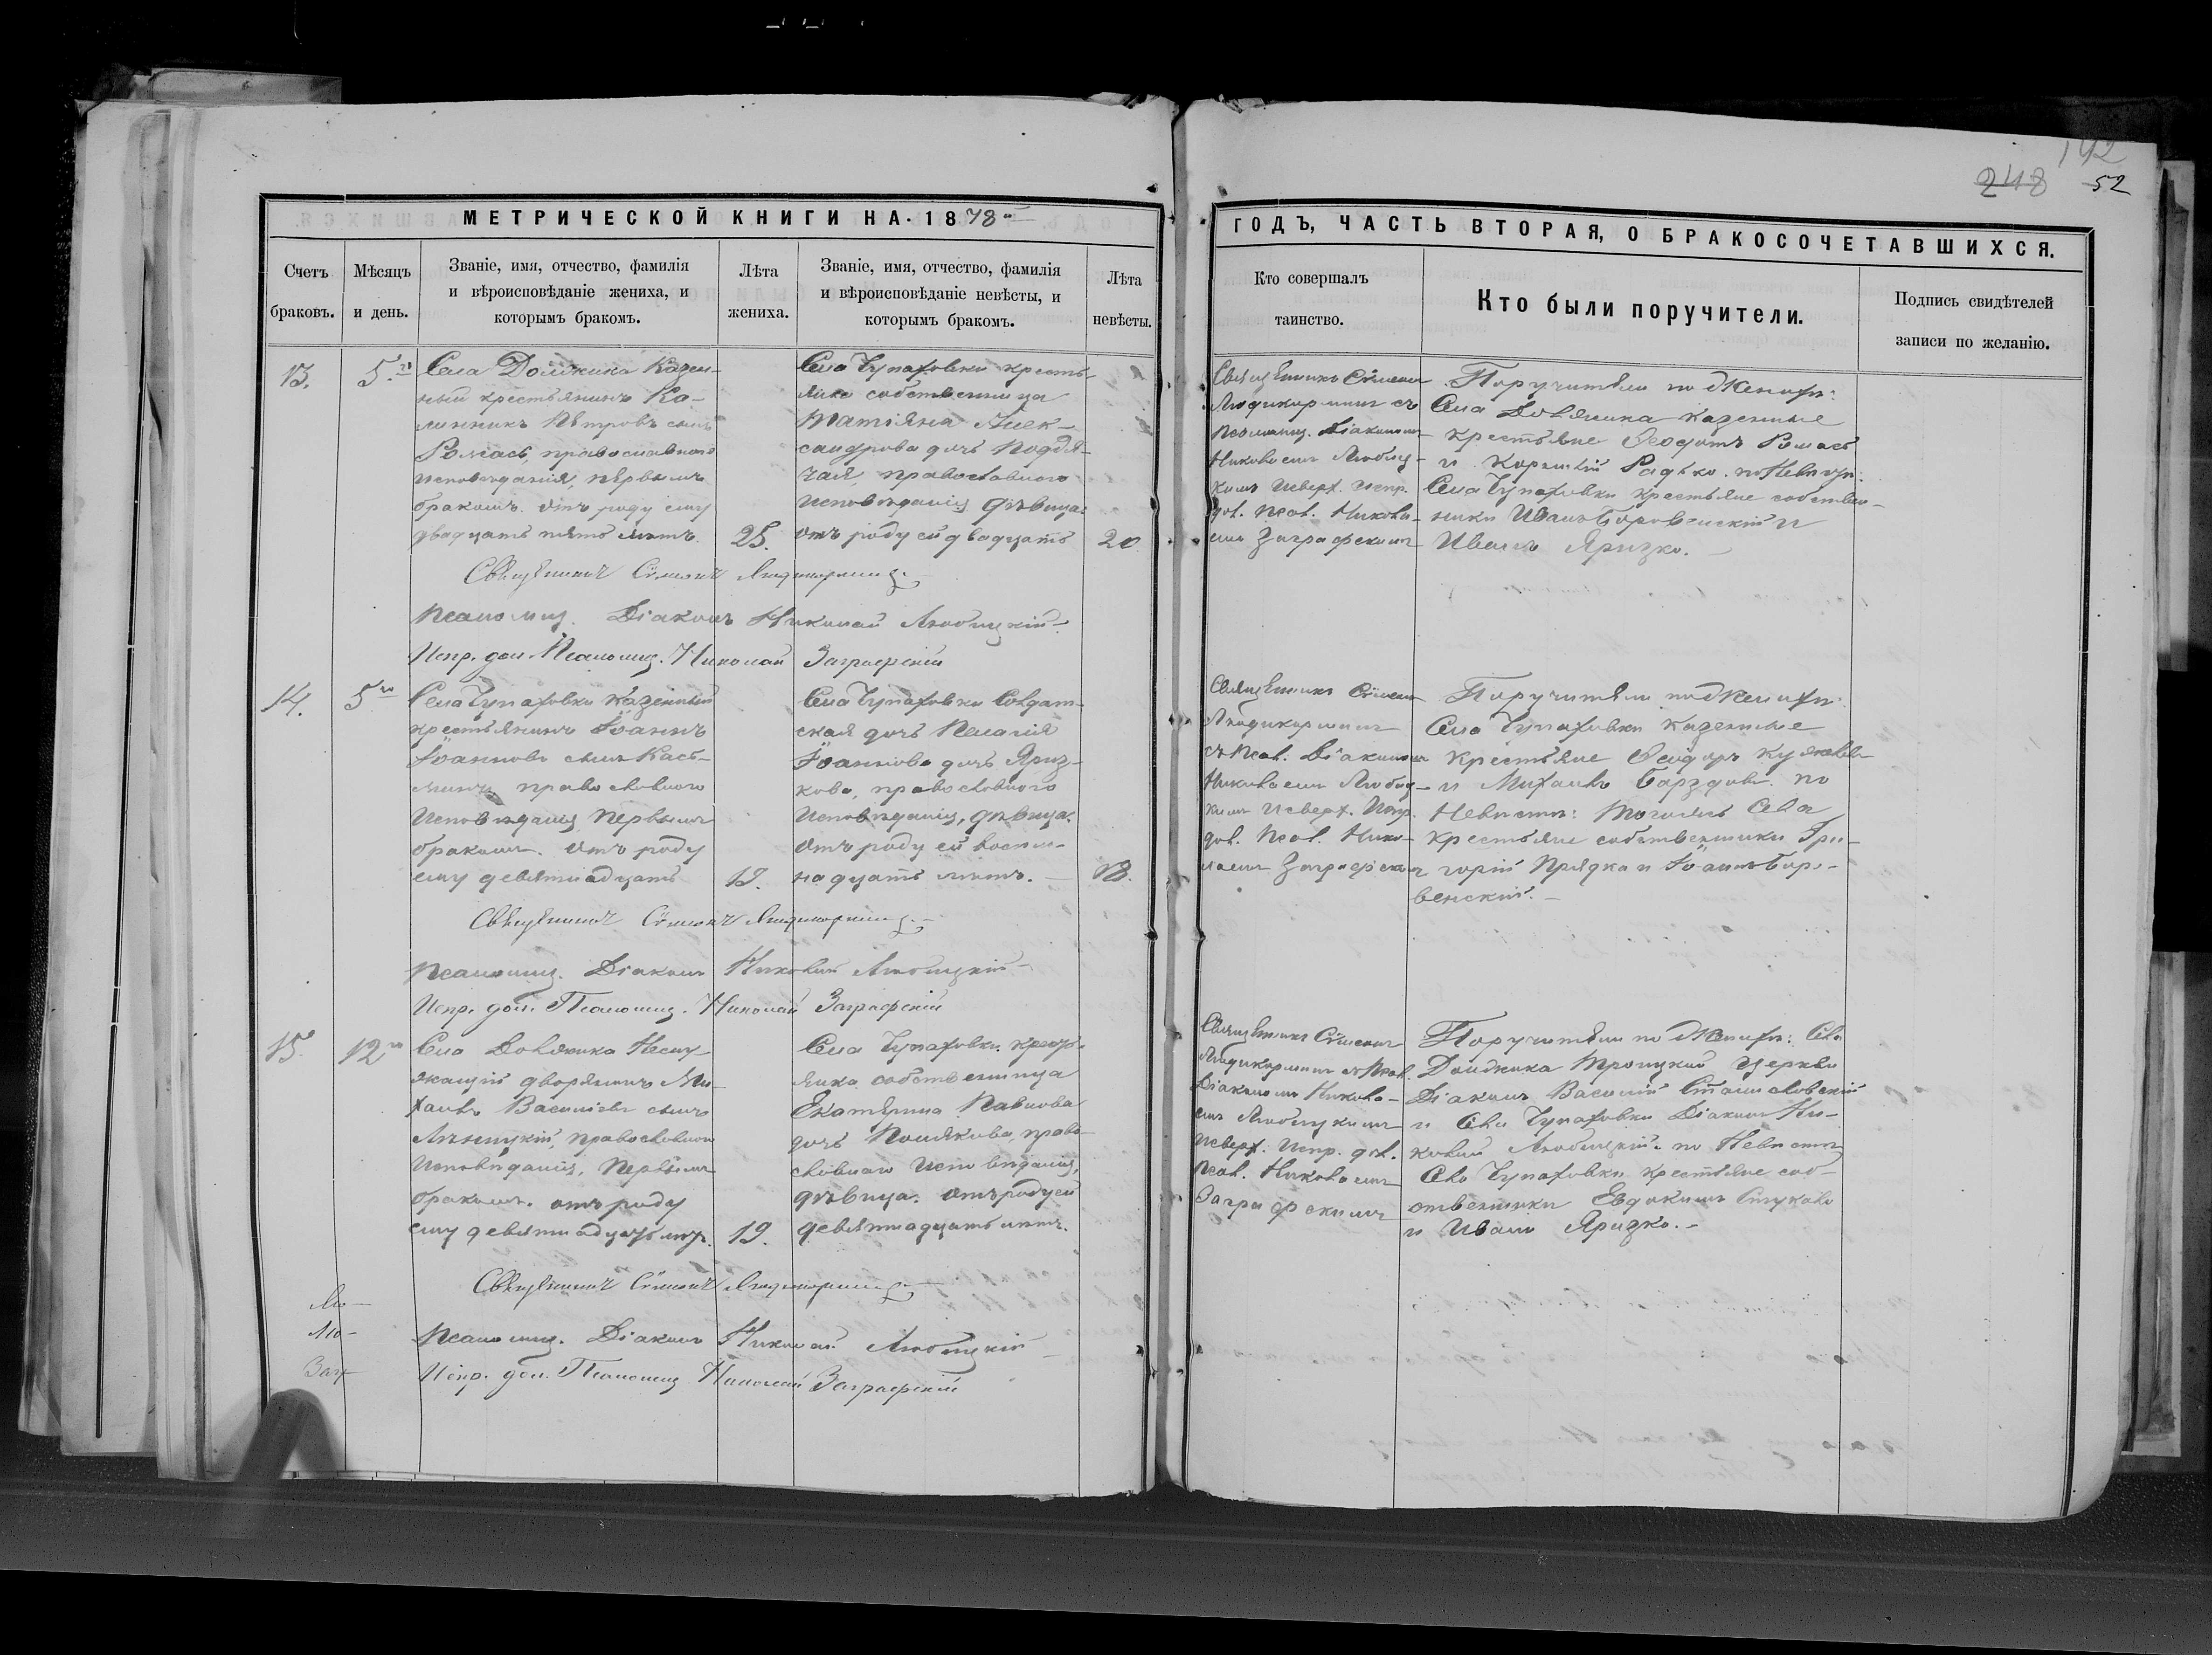 142
248 52
МЕТРИЧЕСКОЙ КНИГИ НА 1878
ГОДЪ, ЧАСТЬ ВТОРАЯ, О БРАКОСОЧЕТАВШИХСЯ.
Счетъ
браковъ.
Мѣсяцъ
и день.
Званіе, имя, отчество, фамилія
и вѣроисповѣданіе жениха, и
которымъ бракомъ.
Лѣта
жениха.
Званіе, имя, отчество, фамилія
и вѣроисповѣданіе невѣсты, и
которымъ бракомъ.
Лѣта
невѣсты.
Кто совершалъ
таинство.
Кто были поручители.
Подпись свидѣтелей
записи по желанію.
13.
5
Села Должика Казен-
ный крестьянинъ
Петровъ сынъ
Ромасъ, православнаго
исповѣданія, первымъ
бракомъ. отъ роду ему
двадцать пять лѣтъ.
25.
Села Чупаховки кресть-
янка собственница
Татіяна Алек-
сандрова дочь Поддя-
чая, православнаго
исповѣданія, дѣвица.
отъ роду ей двадцать
20
Священникъ Симеонъ
съ
Псаломщ. Діакономъ
Николаемъ Любиц-
кимъ Испр.
дол. Псал. Никола-
емъ Заграфскимъ
Поручители по Женихѣ:
Села Должика казенные
крестьяне Ѳеодотъ Ромасъ
и Радько. по Невѣстѣ:
Села Чупаховки крестьяне собствен-
ники Иванъ Боровенскій и
Иванъ Яризко.
Священникъ Симеонъ
Псаломщ. Діаконъ Николай Любицкій
Испр. дол. Псаломщ. Николай Заграфскій
14.
5
Села Чупаховки Казенный
крестьянинъ Іоаннъ
Іоанновъ сынъ Кась-
православнаго
исповѣданія, первымъ
бракомъ. отъ роду
ему девятнадцать
19.
Села Чупаховки Солдат-
ская дочь Пелагія
Іоаннова дочь Яриз-
кова, православнаго
исповѣданія, дѣвица.
отъ роду ей восем-
надцать лѣтъ.
18.
Священникъ Симеонъ
съ Псал. Діакономъ
Николаемъ Любиц-
кимъ Испр.
дол. Псал. Нико-
лаемъ Заграфскимъ
Поручители по Женихѣ:
Села Чупаховки казенные
крестьяне Ѳеодоръ
и Михаилъ по
Невѣстѣ: того же Села
крестьяне собственники Гри-
горій Прядка и Іоаннъ Боро-
венскій.
Священникъ Симеонъ
Псаломщ. Діаконъ Николай Любицкій
Испр. дол. Псаломщ. Николай Заграфскій
15.
12
Села Должика Неслу-
жащій дворянинъ Ми-
хаилъ Василіевъ сынъ
православнаго
исповѣданія, первымъ
бракомъ. отъ роду
ему девятнадцать лѣтъ.
19.
Села Чупаховки крестья-
янка собственница
Екатерина Павлова
дочь Полякова, право-
славнаго исповѣданія,
дѣвица. отъ роду ей
девятнадцать лѣтъ.
Священникъ Симеонъ
съ Псал.
Діакономъ Никола-
емъ Любицкимъ
Испр. дол.
Псал. Николаемъ
Заграфскимъ
Поручители по Женихѣ: Села
Должика Троицкой церкви
Діаконъ Василій Станиславскій
и Села Чупаховки Діаконъ Ни-
колай Любицкій. по Невѣстѣ
Села Чупаховки крестьяне соб-
ственники Евдокимъ
и Иванъ Яризко.
Священникъ Симеонъ
Лю-
Псаломщ. Діаконъ Николай Любицкій
Загр-
Испр. дол. Псаломщ. Николай Заграфскій